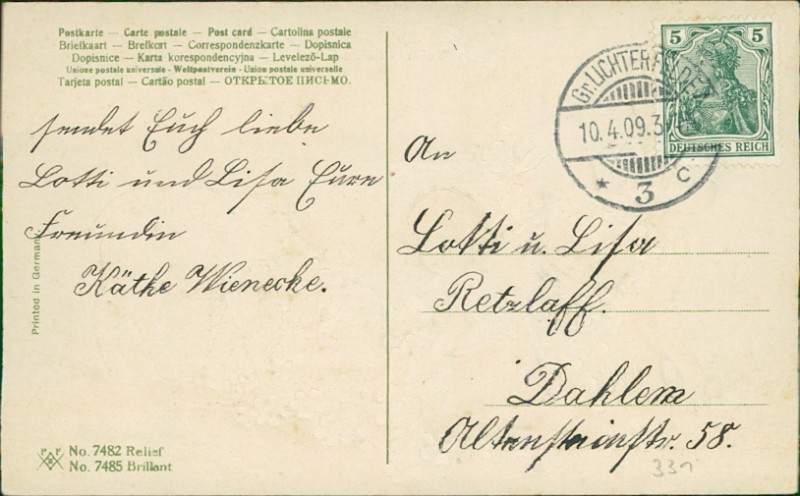 Postkarte — Carte postale — Post card — Cartolina postale
Briefkaart — Brefkort — Correspondenzkarte — Dopisnica
Dopisnice — Karta korespondencyjna — Levelező-Lap
Unione postale universale - Weltpostverein - Union postale universelle
Tarjeta postal — Cartão postal — ОТКРЫТОЕ ПИСЬМО.
sendet Euch liebe
Lotti und Lisa Eure
Freundin
Käthe Wienecke.
Printed in German
No. 7482 Relief
No. 7485 Brillant
5 5
DEUTSCHES REICH
Gr. LICHTERFELDE
10.4.09.3
* 3 c
An
Lotti u. Lisa
Retzlaff.
Dahlem
Altensteinstr. 58.
331